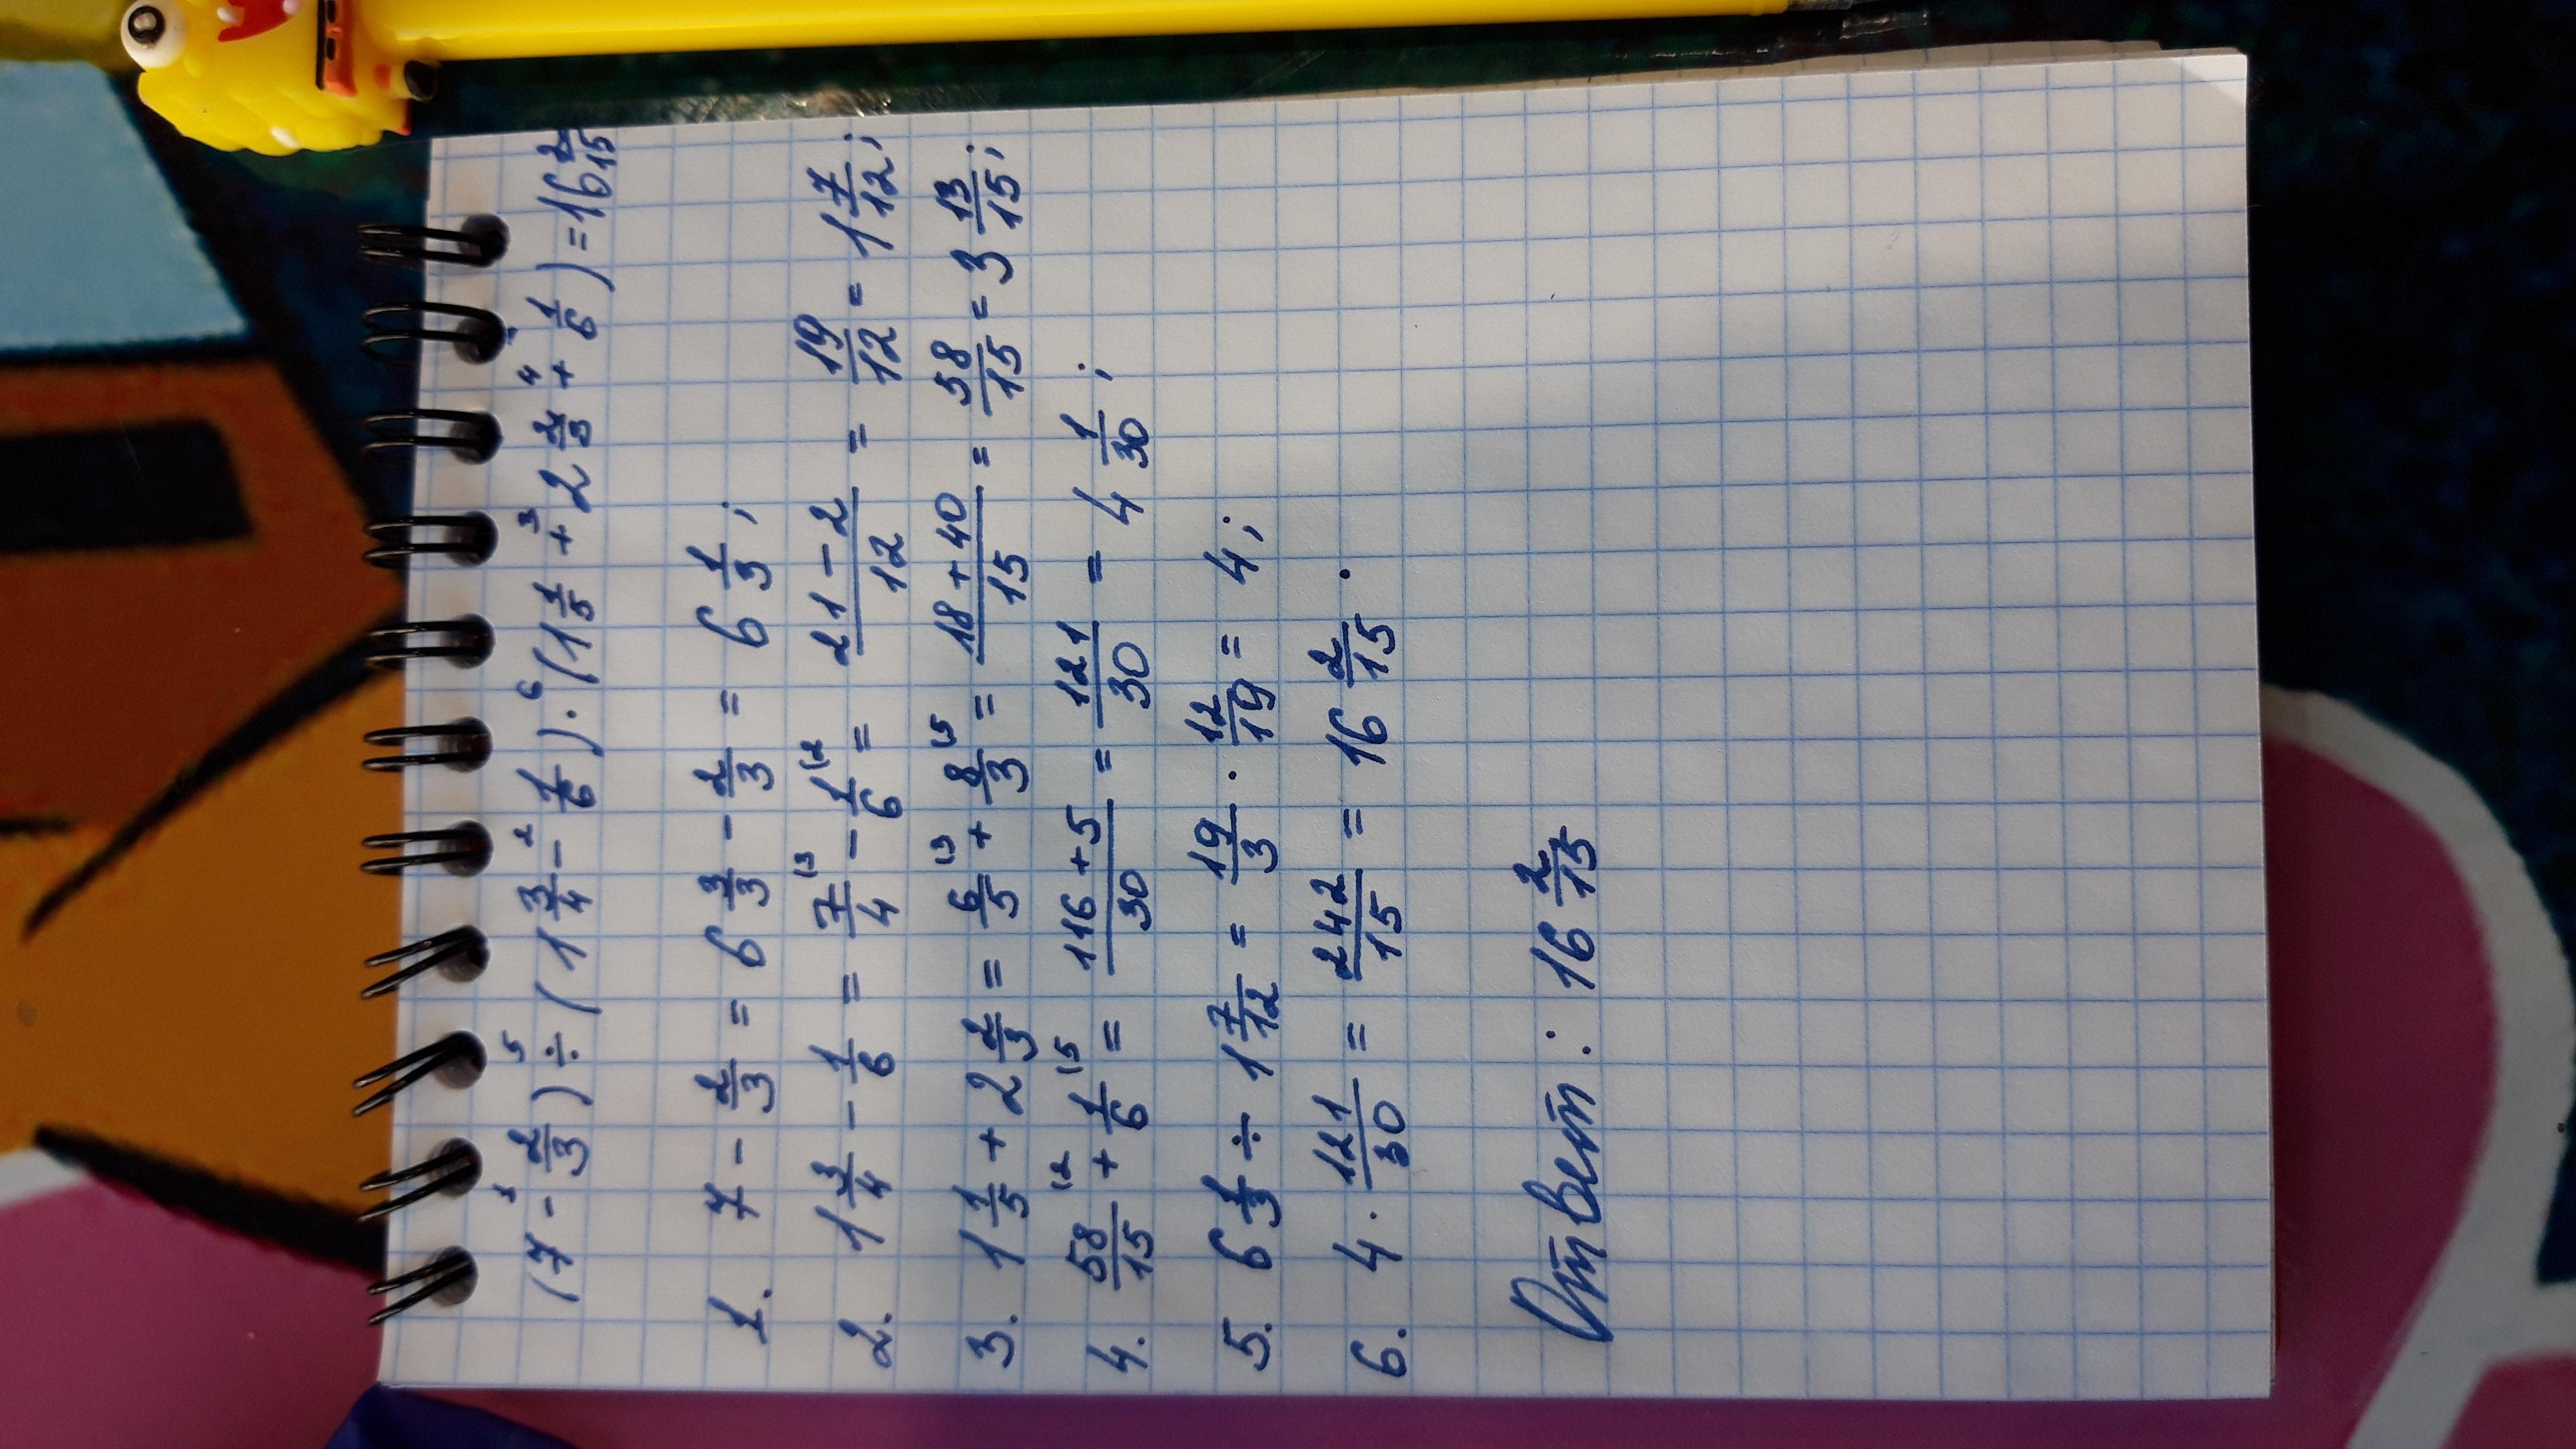 (7 - 2/3) ÷ (1 3/4 - 1/6) · (1 1/5 + 2 2/3 + 1/6) = 16 2/15
1. 7 - 2/3 = 6 3/3 - 2/3 = 6 1/3;
2. 1 3/4 - 1/6 = 7/4 - 1/6 = (21 - 2)/12 = 19/12 = 1 7/12;
3. 1 1/5 + 2 2/3 = 6/5 + 8/3 = (18 + 40)/15 = 58/15 = 3 13/15;
4. 58/15 + 1/6 = (116 + 5)/30 = 121/30 = 4 1/30;
5. 6 1/3 ÷ 1 7/12 = 19/3 · 12/19 = 4;
6. 4 · 121/30 = 242/15 = 16 2/15.
Ответ: 16 2/15